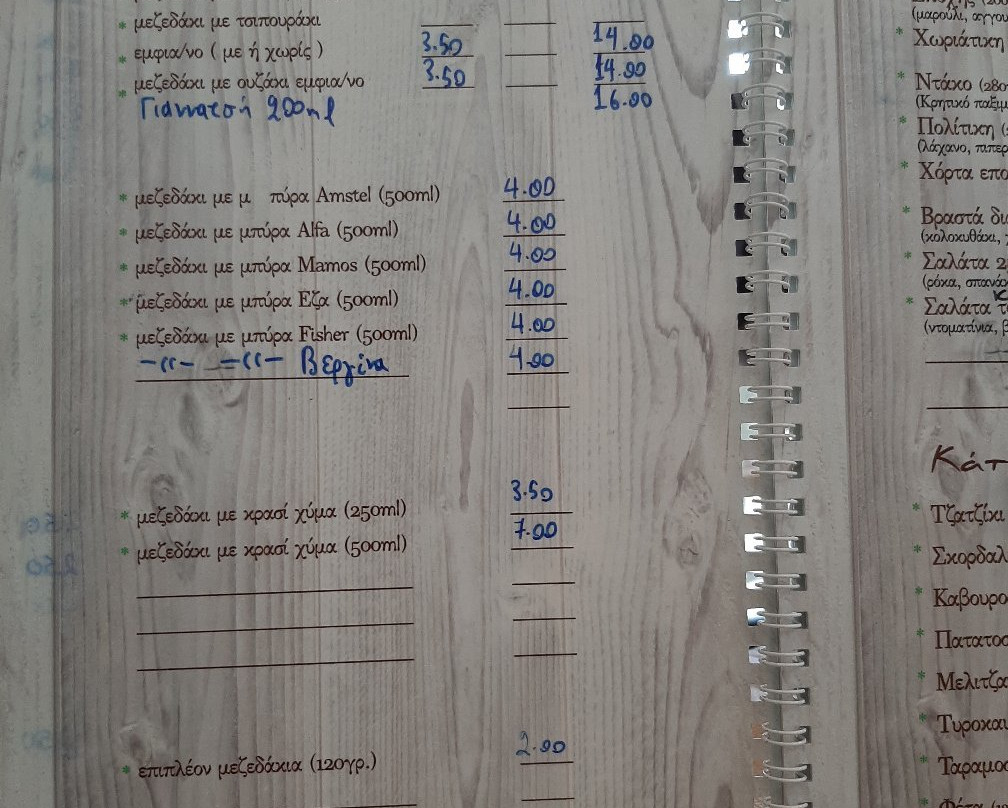 * μεζεδάκι με τσιπουράκι
* εμφια/νο ( με ή χωρίς ) 3.50 14.00
* μεζεδάκι με ουζάκι εμφια/νο 3.50 14.00
* Γιαννατσή 200ml 16.00
* μεζεδάκι με μ πύρα Amstel (500ml) 4.00
* μεζεδάκι με μπύρα Alfa (500ml) 4.00
* μεζεδάκι με μπύρα Mamos (500ml) 4.00
* μεζεδάκι με μπύρα Εζα (500ml) 4.00
* μεζεδάκι με μπύρα Fisher (500ml) 4.00
-〃- -〃- Βεργίνα 4.00
* μεζεδάκι με κρασί χύμα (250ml) 3.50
* μεζεδάκι με κρασί χύμα (500ml) 7.00
* επιπλέον μεζεδάκια (120γρ.) 2.00
(μαρούλι,
* Χωριάτικη
* Ντάκο
(Κρητικό
* Πολίτικη
(λάχανο,
* Χόρτα
* Βραστά
(κολοκυθάκι,
* Σαλάτα
(ρόκα,
* Σαλάτα
(ντοματίνια,
Κατ
* Τζατζίκι
* Σκορδαλ
* Καβουρο
* Πατατοσ
* Μελιτζα
* Τυροκαυ
* Ταραμοσ